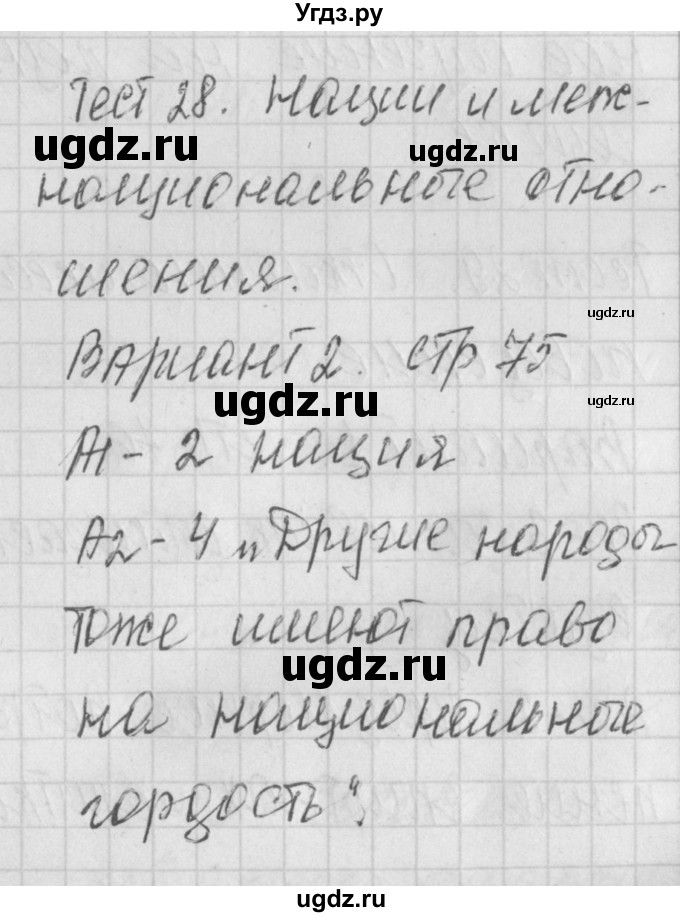 Угдз.ру
Тест 28. Нации и меж-
национальные отно-
шения.
Вариант 2. стр 75
А1 - 2 нация
А2 - 4 „Другие народы
тоже имеют право
на национальные
гордость“.
ugdz.ru
ugdz.ru
ugdz.ru
ugdz.ru
ugdz.ru
ugdz.ru
ugdz.ru
ugdz.ru